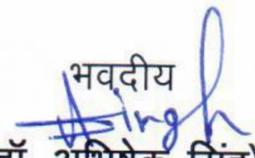 भवदीय
Singh
डॉ अभिषेक सिंह